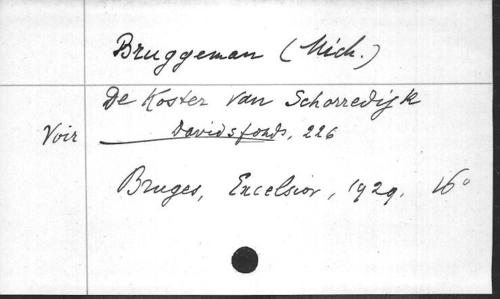 Bruggeman (Mich.)
De Koster van Schorredijk
Voir Davidsfonds, 226
Bruges, Excelsior, 1929. 16°